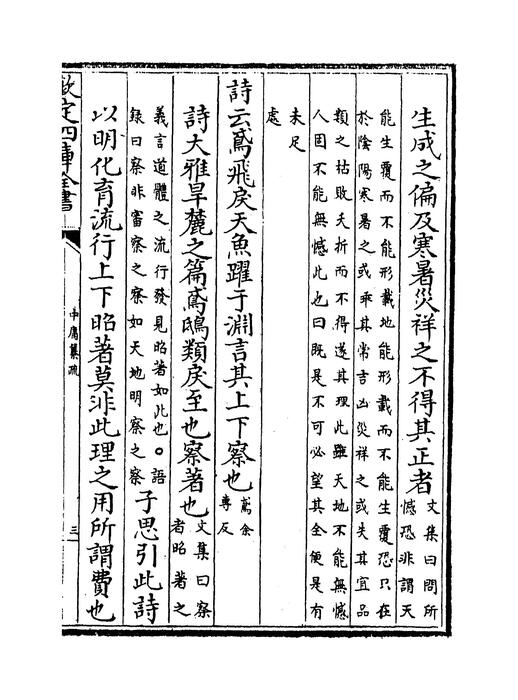 生成之偏及寒暑災祥之不得其正者文集曰問所
憾恐非謂天
能生覆而不能形載地能形載而不能生覆恐只在
於陰陽寒暑之或乖其常吉凶災祥之或失其宜品
類之枯敗夭折而不得遂其理此雖天地不能無憾
人固不能無憾此也曰既是不可必望其全便是有
未足
處
詩云鳶飛戾天魚躍于淵言其上下察也鳶余
專反
詩大雅旱麓之篇鳶鴟類戾至也察著也文集曰察
者昭著之
義言道體之流行發見昭著如此也。語
録曰察非審察之察如天地明察之察子思引此詩
以明化育流行上下昭著莫非此理之用所謂費也
欽定四庫全書
中庸纂疏
三